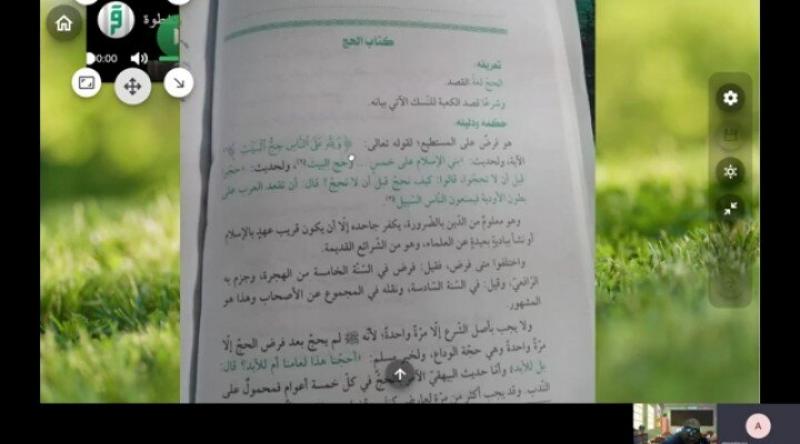 0:00
كتاب الحج
تعريفه:
الحج لغة القصد.
وشرعًا قصد الكعبة للنسك الآتي بيانه.
حكمه ودليله:
هو فرضٌ على المستطيع؛ لقوله تعالى: ﴿وَلِلَّهِ عَلَى النَّاسِ حِجُّ الْبَيْتِ﴾
الآية، ولحديث: «بني الإسلام على خمسٍ ... وحج البيت»(٢)، ولحديث: «حجّوا
قبل أن لا تحجّوا، قالوا: كيف نحجّ قبل أن لا نحجّ؟ قال: أن تقعد العرب على
بطون الأودية فيمنعون الناس السبيل»(٣).
وهو معلومٌ من الدّين بالضّرورة، يكفر جاحده إلّا أن يكون قريب عهدٍ بالإسلام
أو نشأ بباديةٍ بعيدةٍ عن العلماء، وهو من الشّرائع القديمة.
واختلفوا متى فرض، فقيل: فرض في السّنة الخامسة من الهجرة، وجزم به
الرّافعيّ، وقيل: في السنة السّادسة، ونقله في المجموع عن الأصحاب وهذا هو
المشهور.
ولا يجب بأصل الشّرع إلّا مرّةً واحدةً؛ لأنه ﷺ لم يحجّ بعد فرض الحجّ إلّا
مرّةً واحدةً وهي حجّة الوداع، ولخبر مسلمٍ: «أحجّنا هذا لعامنا أم للأبد؟ قال:
بل للأبد» وأمّا حديث البيهقيّ الآمر بالحجّ في كلّ خمسة أعوامٍ فمحمولٌ على
النّدب. وقد يجب أكثر من مرّةٍ لعارضٍ
A